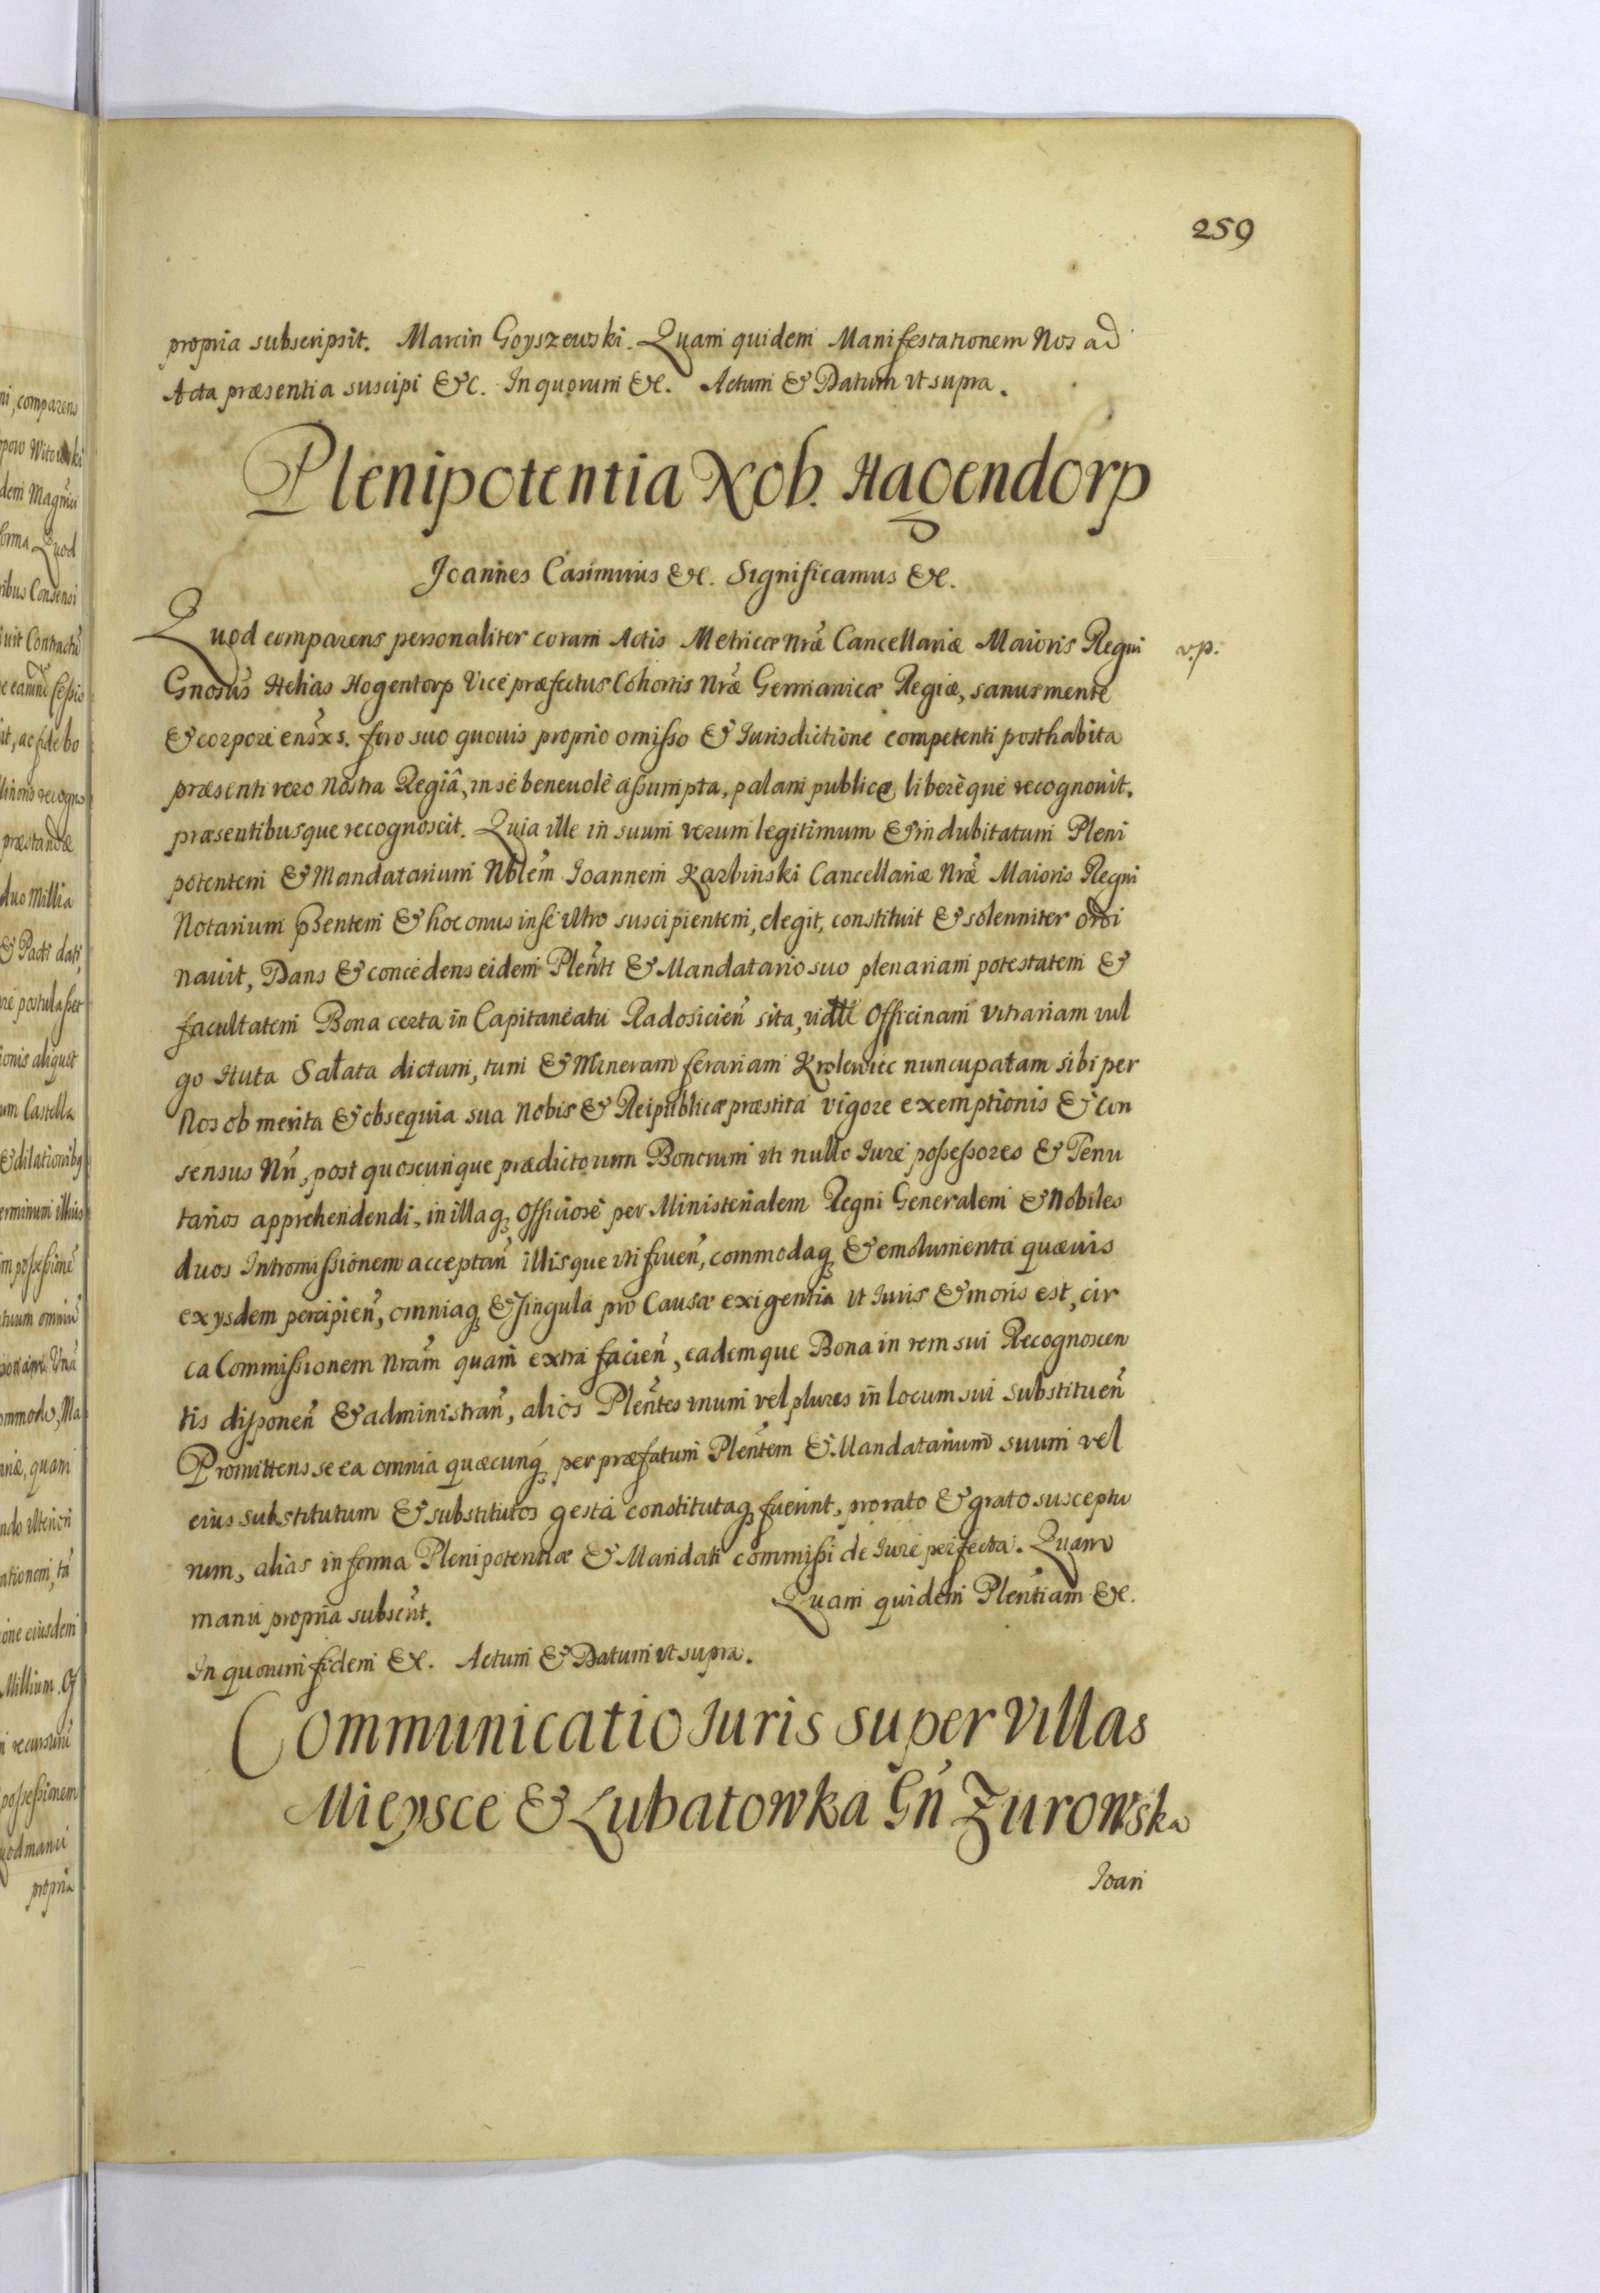 259
propria subscripsit. Marcin Goyszewski. Quam quidem Manifestationem Nos ad
Acta præsentia suscipi &c. In quorum &c. Actum & Datum ut supra.
Plenipotentia Nob. Hagendorp
Joannes Casimirus &c. Significamus &c.
Quod comparens personaliter coram Actis Metricæ Nræ Cancellariæ Maioris Regni v.p.
Gnosus Helias Hogentorp Vice præfectus Cohortis Nræ Germanicæ Regiæ, sanus mente
& corpore ensxs. foro suo quovis proprio omisso & Jurisdictione competenti posthabita
præsenti vero Nostra Regiâ, in se benevolè assumpta, palam publicè liberèque recognovit.
præsentibusque recognoscit. Quia ille in suum verum legitimum & indubitatum Pleni
potentem & Mandatarium Nblem Joannem Karbinski Cancellariæ Nræ Maioris Regni
Notarium Pentem & hoc onus in se ultro suscipientem, elegit, constituit & solenniter ordi
navit, Dans & concedens eidem Plenti & Mandatario suo plenariam potestatem &
facultatem Bona certa in Capitaneatu Radosicien sita, vidtt Officinam Vitrariam vul
go Huta Sałata dictam, tum & Mineram ferariam Krolewiec nuncupatam sibi per
Nos ob merita & obsequia sua Nobis & Reipublicæ præstita vigore exemptionis & Con
sensus Nri, post quoscunque prædictorum Bonorum uti nullo Jure possessores & Tenu
tarios apprehendendi, in illaq Officiose per Ministerialem Regni Generalem & Nobiles
duos Intromissionem acceptan illisque uti fruen, commodaq & emolumenta quævis
ex ysdem percipien, omniaq & singula pro Causæ exigentia ut Juris & moris est, cir
ca Commissionem Nram quam extra facien, eademque Bona in rem sui Recognoscen
tis disponen & administran, alios Plentes unum vel plures in locum sui substituen
Promittens se ea omnia quæcunq per præfatum Plentem & Mandatarium suum vel
eius substitutum & substitutos gesta constitutaq fuerint, pro rato & grato susceptu
rum, alias in forma Plenipotentiæ & Mandati commissi de Jure perfecta. Quam
manu propria subscrit. Quam quidem Plentiam &c.
In quorum fidem &c. Actum & Datum ut supra.
Communicatio Juris super Villas
Mieysce & Lubatowka Gn Zurowska
Joan